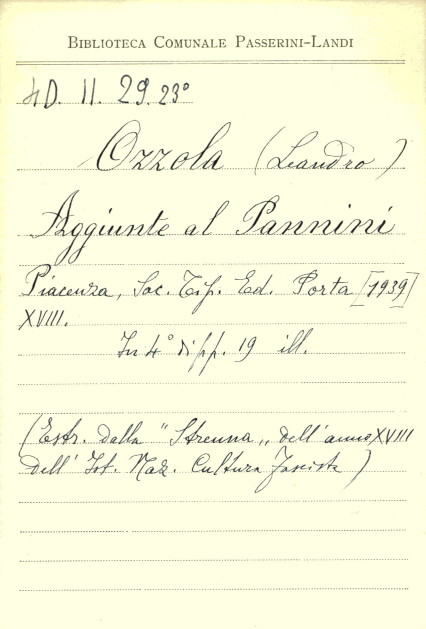 BIBLIOTECA COMUNALE PASSERINI-LANDI
4D. II. 29. 23°
Ozzola (Leandro)
Aggiunte al Pannini
Piacenza, Soc. Tip. Ed. Porta [1939]
XVIII.
In 4° di pp. 19 ill.
(Estr. dalla "Strenna„ dell'anno XVIII
dell' Ist. Naz. Cultura Fascista)